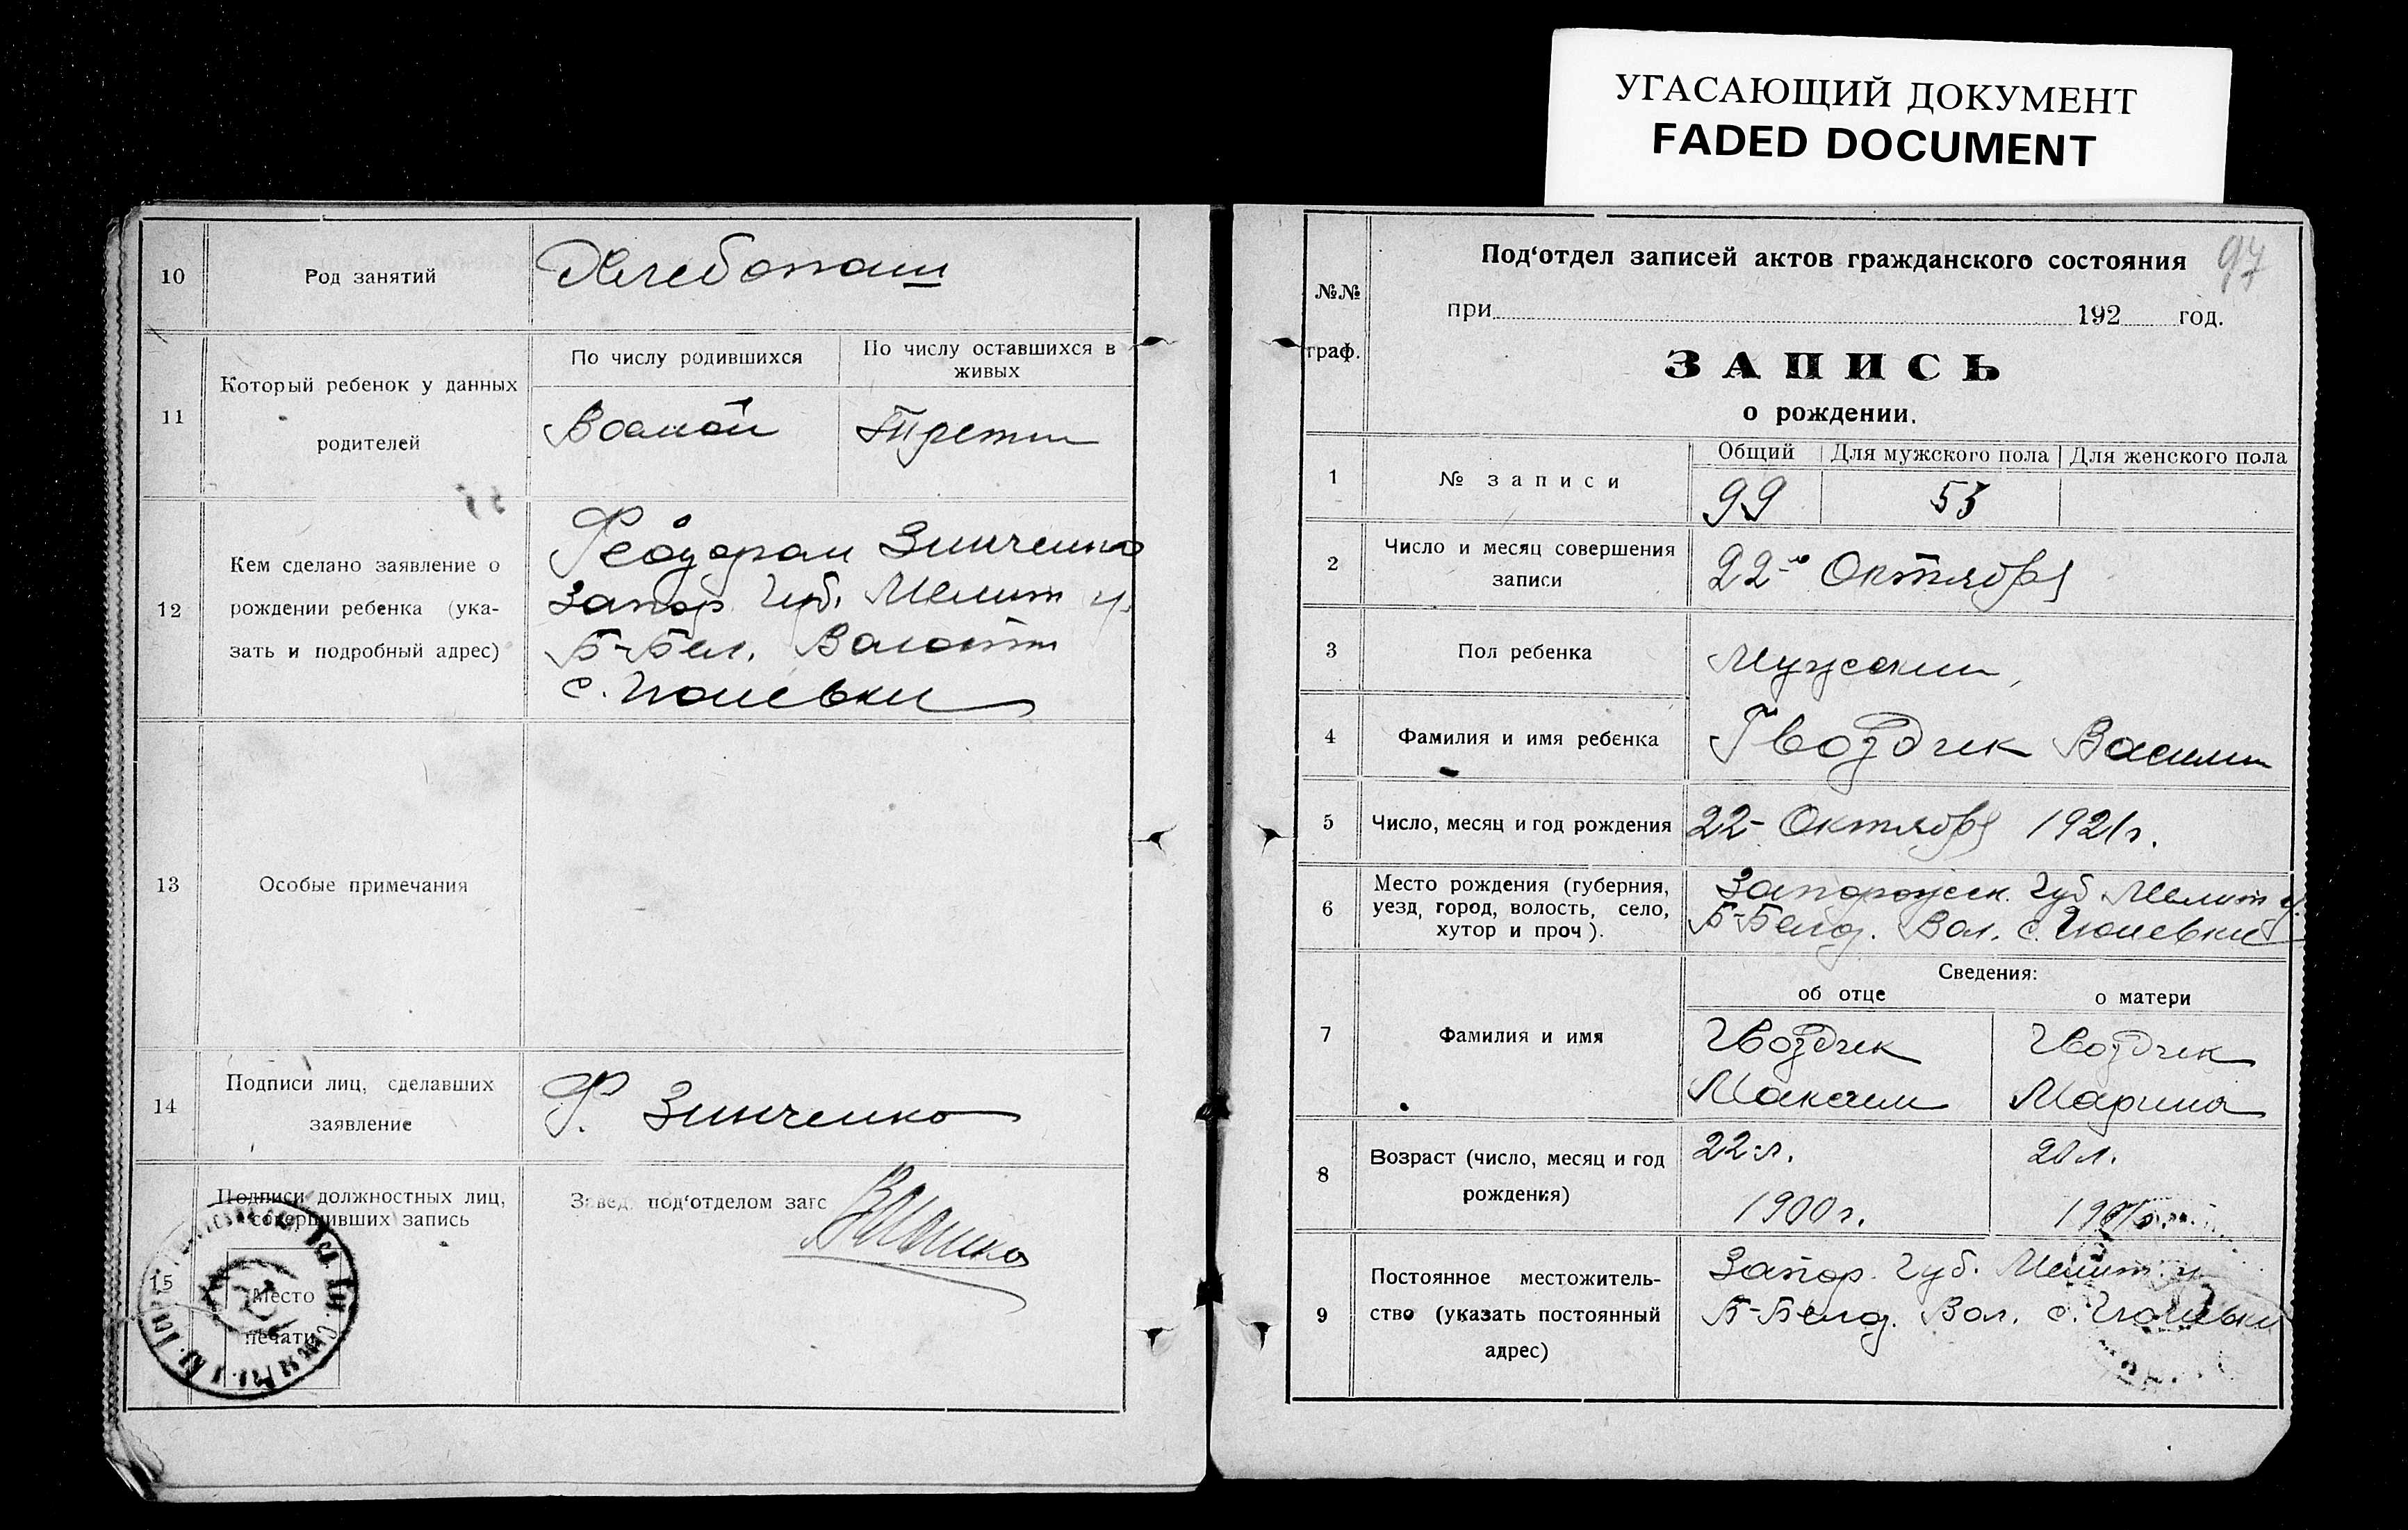 УГАСАЮЩИЙ ДОКУМЕНТ
FADED DOCUMENT
10
Род занятий
Хлебопаш
11
Который ребенок у данных
родителей
По числу родившихся
По числу оставшихся в
живых
Восмой
Третий
12
Кем сделано заявление о
рождении ребенка (ука-
зать и подробный адрес)
Феодором Зинченко
Запор. Губ. Мелит у.
Б-Бел. Волости
с.
13
Особые примечания
14
Подписи лиц, сделавших
заявление
Ф. Зинченко
15
Подписи должностных лиц,
совершивших запись
Место
печати
Завед. под‘отделом загс
97
№№
граф.
Под‘отдел записей актов гражданского состояния
при 192 год.
ЗАПИСЬ
о рождении.
1
№ записи
Общий
Для мужского пола
Для женского пола
99
53
2
Число и месяц совершения
записи
22-го Октября
3
Пол ребенка
Мужский
4
Фамилия и имя ребенка
Гвоздик Василий
5
Число, месяц и год рождения
22- Октября 1921 г.
6
Место рождения (губерния,
уезд, город, волость, село,
хутор и проч).
Запорожск. Губ Мелит у.
Б-Белоз. Вол. с.
7
Фамилия и имя
Сведения:
об отце
о матери
Гвоздик
Максим
Гвоздик
Марина
8
Возраст (число, месяц и год
рождения)
22 л.
1900 г.
20 л.
9
Постоянное местожитель-
ство (указать постоянный
адрес)
Запор. Губ. Мелит. у.
Б-Белоз. Вол. с.